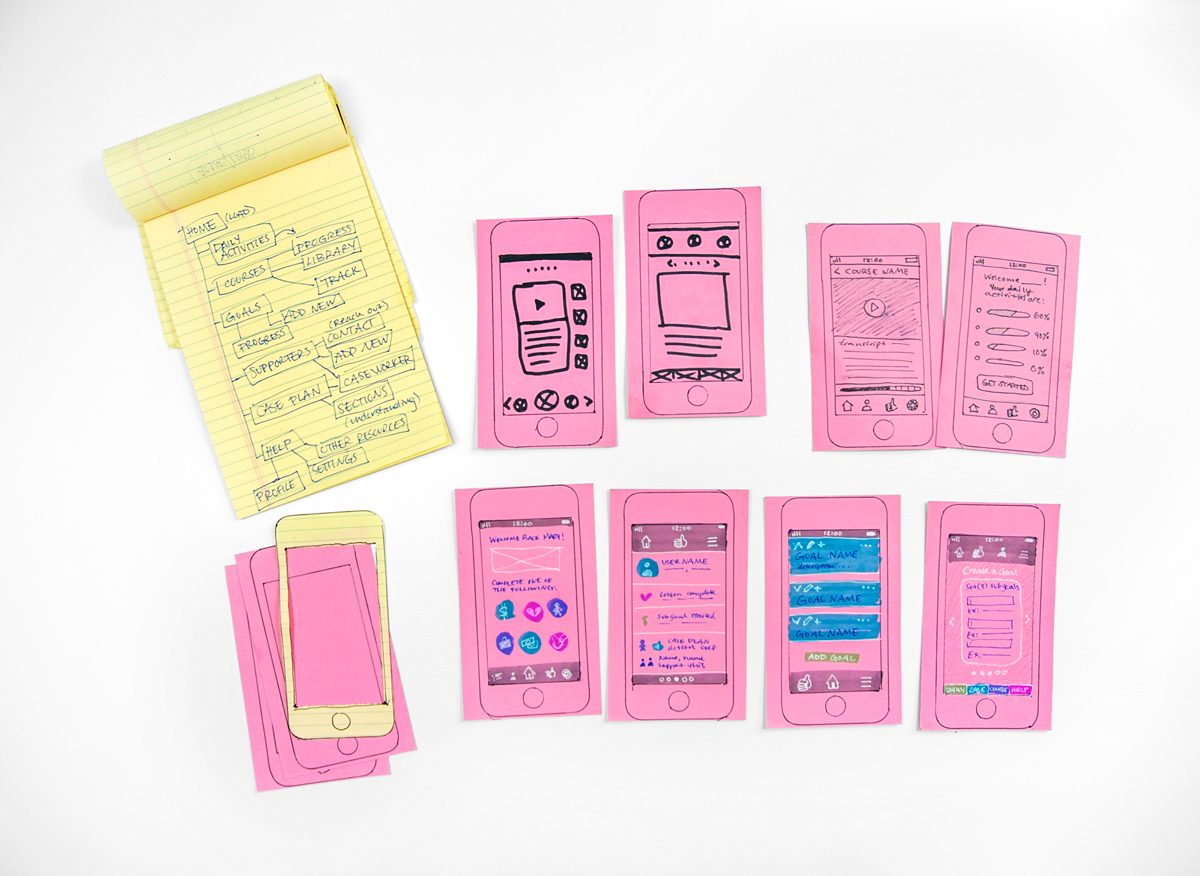 HOME (LOAD)
DAILY
ACTIVITIES
PROGRESS
LIBRARY
COURSES
TRACK
GOALS
ADD NEW
PROGRESS
(Reach out)
CONTACT
SUPPORTERS
ADD NEW
CASE WORKER
CASE PLAN
SECTIONS
(understanding)
HELP
OTHER RESOURCES
SETTINGS
PROFILE
12:00
< COURSE NAME
transcript
12:00
Welcome ____!
Your daily
activities are:
60%
40%
10%
0%
GET STARTED
12:00
WELCOME BACK MARY!
COMPLETE ONE OF
THE FOLLOWING:
$
12:00
USER NAME
Lesson complete
Subgoal started
CASE PLAN
action step
Name, Name
support this
12:00
GOAL NAME
description ....
GOAL NAME
GOAL NAME
ADD GOAL
12:00
Create a Goal
subgoals
Ex:
Ex:
Ex:
DAILY CASE COURSE HELP